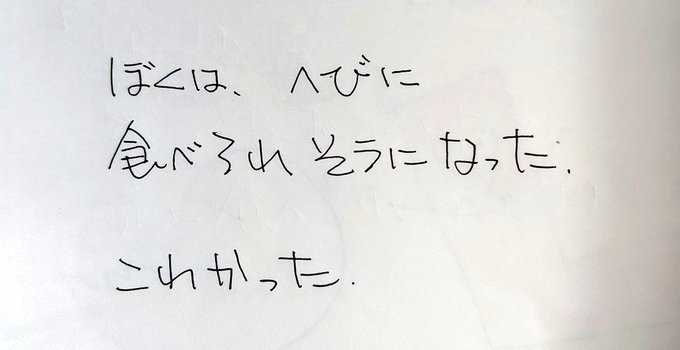 ぼくは、へびに
食べられそうになった.
これかった.